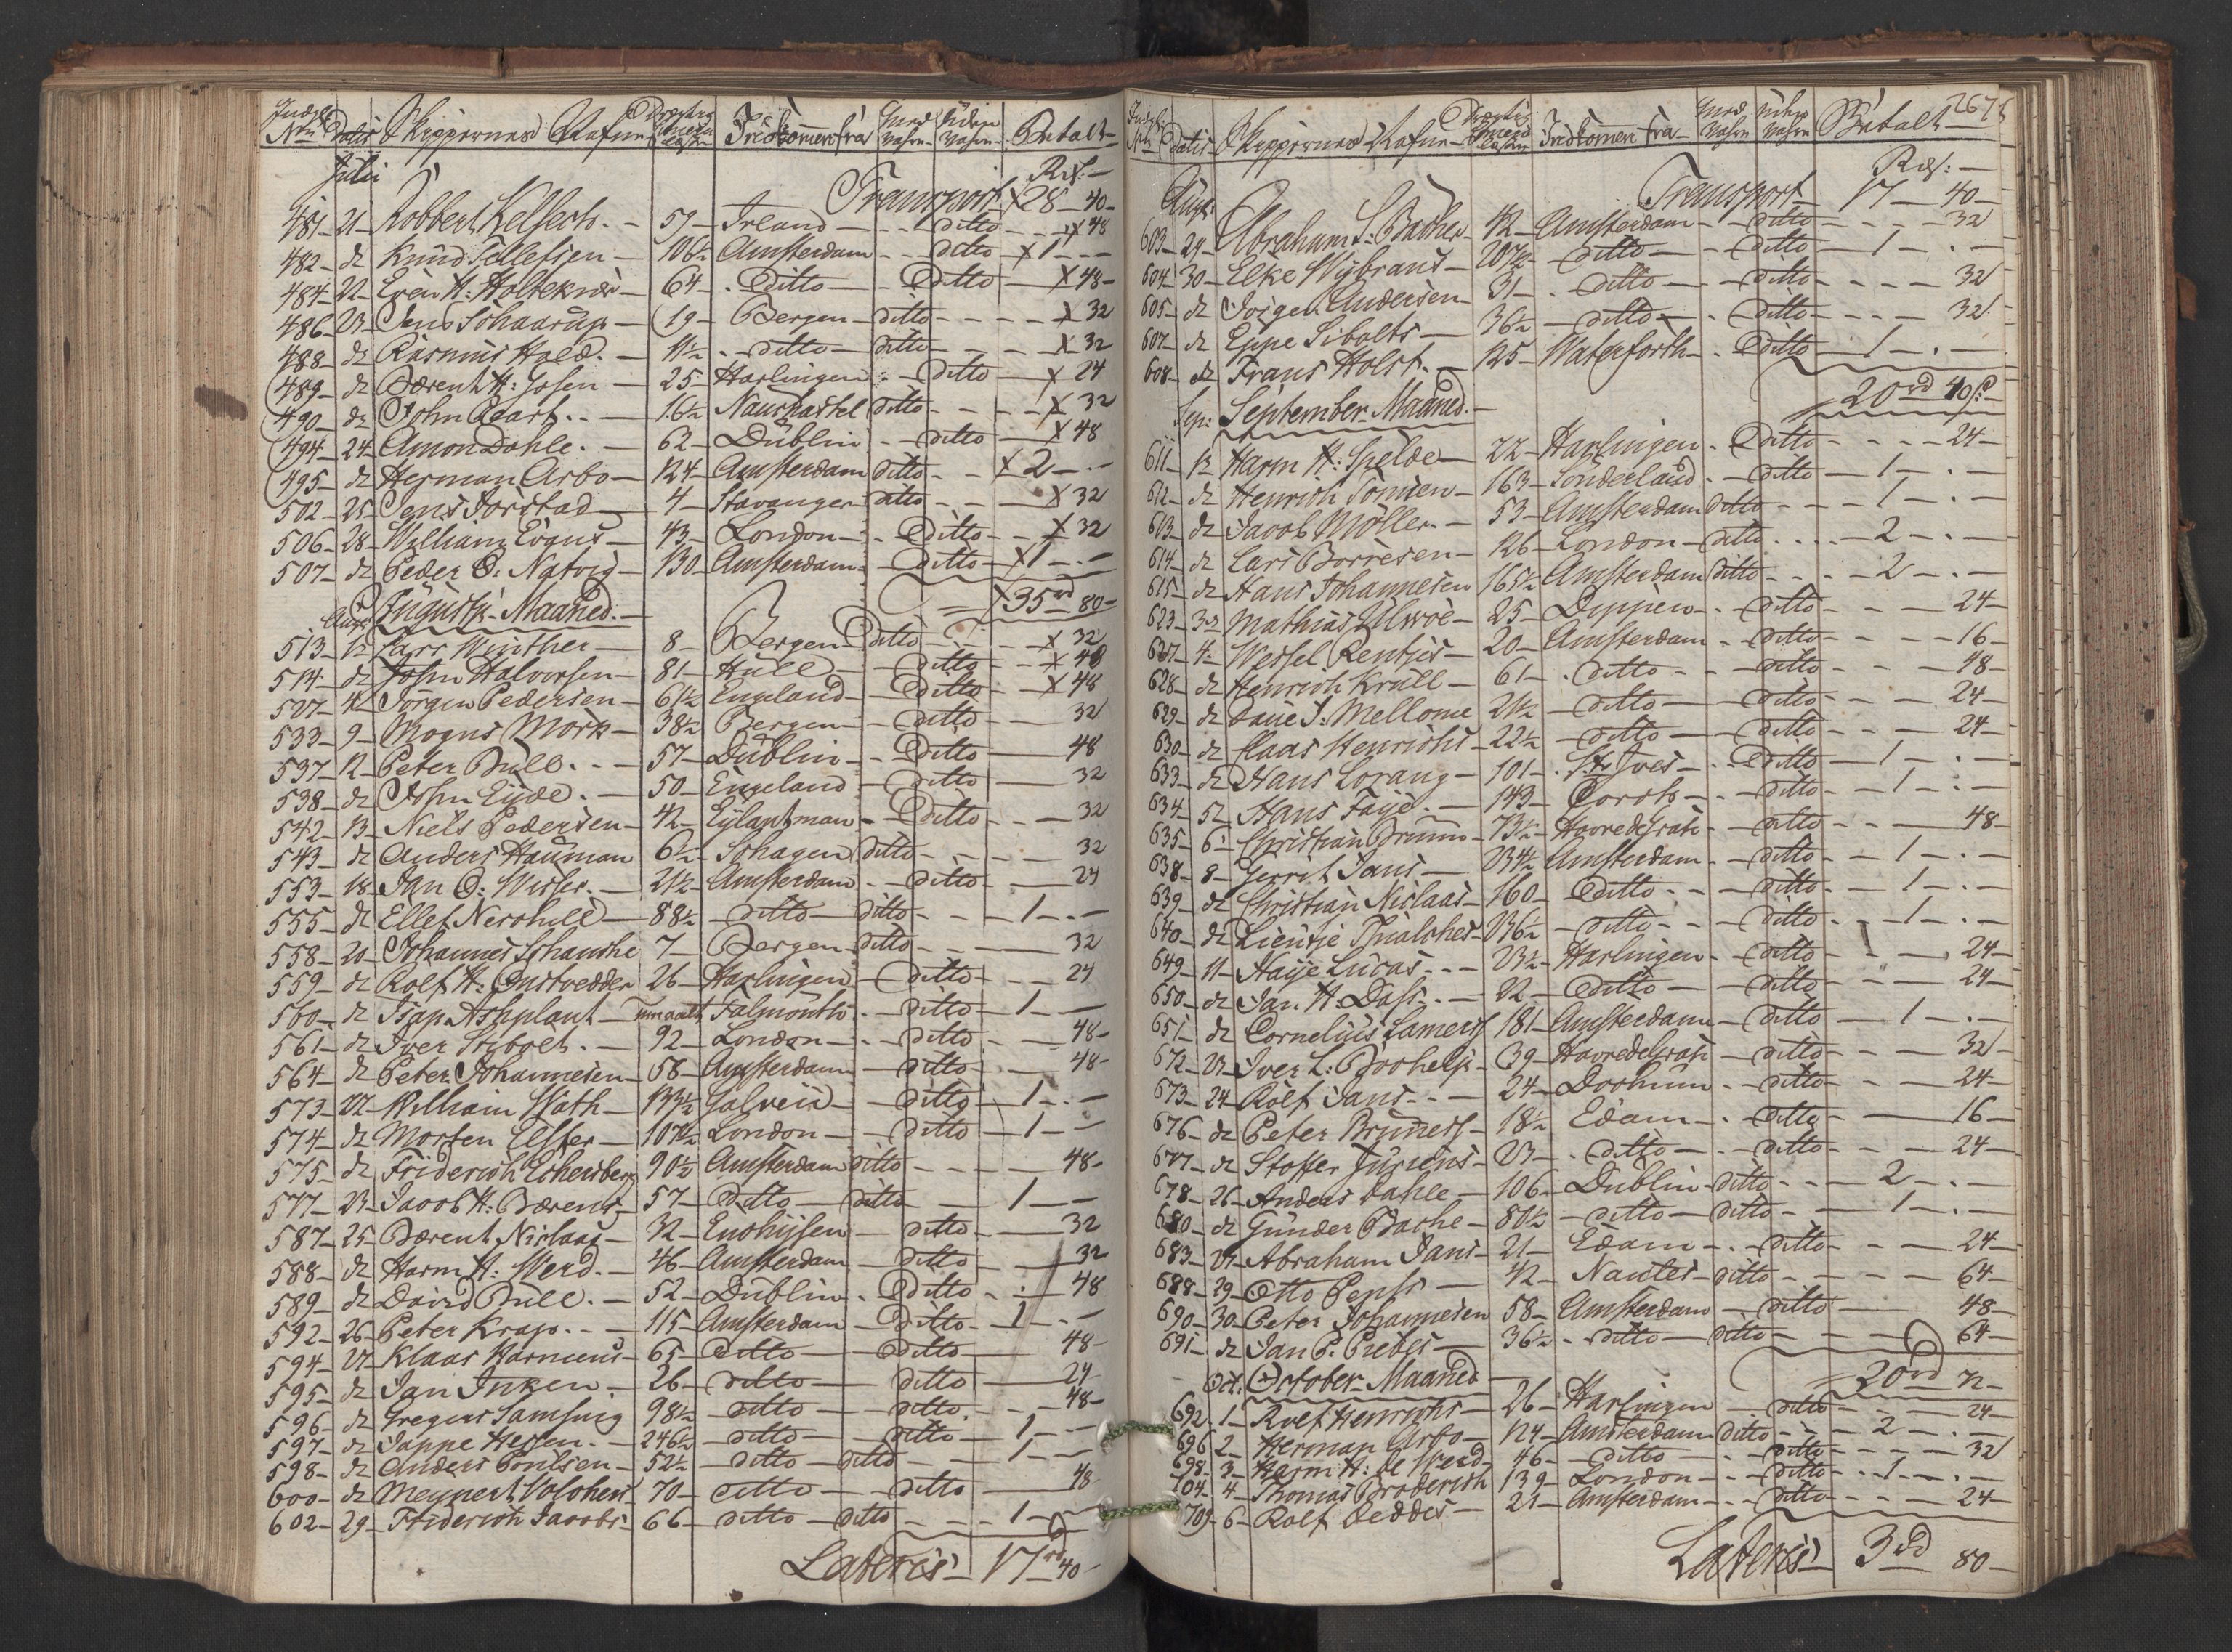 Indgl: Nru Datis Skippernes Nafne Drægtig Comerse læster Indkommen fra Med Vahre Uden Vahre Betalt
Julii Rd:
Transport 28 40
481 21 Robbert Kelserh 59 Irland ditto 48
482 dt Knud Tellefsen 106½ Amsterdam ditto 1
484 22 Even H: Holteknør 64 Ditto Ditto 48
486 23 Jens Schaarup 19 Bergen ditto 32
488 dt Rasmus Hold 11½ ditto ditto 32
489 dt Bærent H: Josen 25 Harlingen Ditto 24
490 dt John Gart 16½ Naurkastel ditto 32
494 24 Amon Dahle 62 Dublin ditto 48
495 dt Herman Arbo 124 Amsterdam ditto 2
502 25 Jens Jorstad 4 Stavanger ditto 32
506 28 William Evgus 43 London Ditto 32
507 dt Peder O: Natvig 130 Amsterdam Ditto 1
35 rd 80
Aug: Augusti Maaned
513 1 Lars Winther 8 Bergen Ditto 32
514 dt John Halvorsen 81 Hull ditto 48
527 4 Jørgen Pedersen 61½ Engeland Ditto 48
533 9 Mogns Mork 38½ Bergen ditto 32
537 12 Peter Bull 57 Dublin Ditto 48
538 dt John Eyde 50 Engeland ditto 32
542 13 Niels Pedersen 42 Eylantman Ditto 32
543 dt Anders Hauman 6½ Schagen ditto 32
553 18 Jan O: Visser 21½ Amsterdam Ditto 24
555 dt Ellef Nershell 88½ ditto ditto 1
558 20 Johannes Schanche 7 Bergen ditto 32
559 dt Rolf H: Onstwedder 26 Harlingen Ditto 24
560 dt Isap Ashplant umaalt Falmouth ditto 1
561 dt Iver Stibolt 92 London ditto 48
564 dt Peter Johannesen 58 Amsterdam ditto 48
573 22 William Wath 133½ Galveid ditto 1
574 dt Morten Elster 107½ London ditto 1
575 dt Friderich Eschersberg 90½ Amsterdam ditto 48
577 23 Jacob H: Bærents 57 Ditto ditto 1
587 25 Bærent Niclaas 32 Enchysen ditto 32
588 dt Harm H: Werd 46 Amsterdam Ditto 32
589 dt David Bull 52 Dublin Ditto 48
592 26 Peter Krap 115 Amsterdam Ditto 1
594 27 Klaas Harmens 65 Ditto Ditto 48
595 dt Jan Inken 26 ditto ditto 24
596 dt Gregers Samsing 98½ ditto ditto 48
597 dt Jappe Hessen 246½ ditto ditto 1
598 dt Anders Poulsen 52½ ditto ditto 1
600 dt Meynert Volchers 70 ditto ditto 48
602 29 Friderich Jacobs 66 ditto ditto 1
Lateris 17 rd 40
267
Indgl: Nru Datis Skippernes Nafne Drægtig Comerse læster Indkommen fra Med Vahre Uden Vahre Betalt
Rd:
Aug: Transport 17 40
603 29 Abraham S: Backer 42 Amsterdam ditto 32
604 30 Elke Wybrans 207½ ditto ditto 1
605 dt Jørgen Andersen 31 ditto ditto 32
607 dt Eppe Sibolts 36½ ditto Ditto 32
608 dt Frans Holst 125 Waterforth Ditto 1
20 rd 40 s
Sep: September Maaned
611 1 Harm H: Spelde 22 Harlingen Ditto 24
612 dt Henrich Tomsen 163 Sonderland ditto 1
613 dt Jacob Möller 53 Amsterdam ditto 1
614 dt Lars Borresen 126 London ditto 2
615 dt Hans Johannesen 165½ Amsterdam ditto 2
623 3 Mathias Ulwøe 25 Dyppen ditto 24
627 4 Wessel Rentjes 20 Amsterdam ditto 16
628 dt Henrich Krull 61 ditto ditto 48
629 dt Daue J: Mellome 21½ ditto ditto 24
630 dt Claas Henrichs 22½ ditto ditto 24
633 dt Hans Lorang 101 St Ives Ditto 1
634 5 Hans Faye 143 Corck ditto 1
635 6 Christian Brumo 73½ Havredegrase ditto 48
638 8 Gerrit Jans 234½ Amsterdam ditto 1
639 dt Christian Niclaas 160 Ditto ditto 1
640 dt Lieutje Thialches 236½ ditto ditto 1
649 11 Haye Lucas 23½ Harlingen ditto 24
650 dt Jan H: Dass 22 Ditto ditto 24
651 dt Cornelius Lamers 181 Amsterdam ditto 1
672 23 Iver L: Bochelss 39 Havredegrase ditto 32
673 24 Rolf Jans 24 Dockum ditto 24
676 dt Peter Bruners 18½ Edam ditto 16
677 dt Stoffer Juriens 23 ditto ditto 24
678 26 Anders Dahle 106 Dublin ditto 2
680 dt Gunder Bache 80½ ditto ditto 1
683 27 Abraham Jans 21 Edam ditto 24
688 29 Otto Penss 42 Nantes ditto 64
690 30 Peter Johannesen 58 Amsterdam ditto 48
691 dt Jan P. Piebes 36½ ditto ditto 64
20 rd 72
Oct: October Maaned
692 1 Rolf Henrichs 26 Harlingen ditto 24
696 2 Herman Arbo 124 Amsterdam ditto 2
698 3 Harm H: de Werd 46 ditto ditto 32
704 4 Thomas Broderich 139 London ditto 1
709 6 Rolf Deddes 21 Amsterdam ditto 24
Lateris 3 rd 80